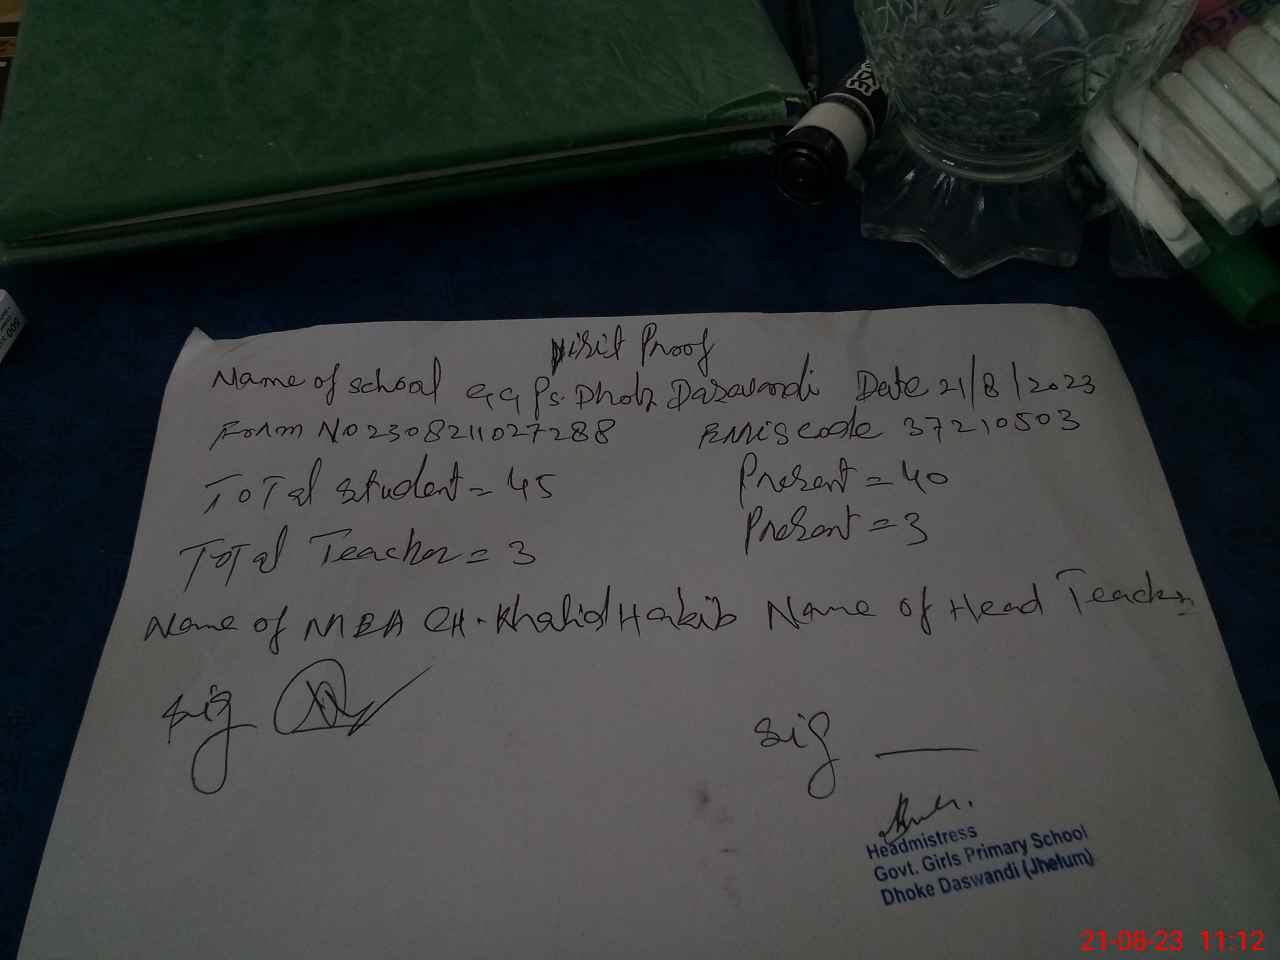 Visit Proof
Name of school GGPS. Dhok Daswandi Date 21/8/2023
Form No 2308211027288 EMIS code 37210503
Total student = 45 Present = 40
Total Teacher = 3 Present = 3
Name of MEA CH. Khalid Habib Name of Head Teacher
sig sig
Headmistress
Govt. Girls Primary School
Dhoke Daswandi (Jhelum)
21-08-23 11:12